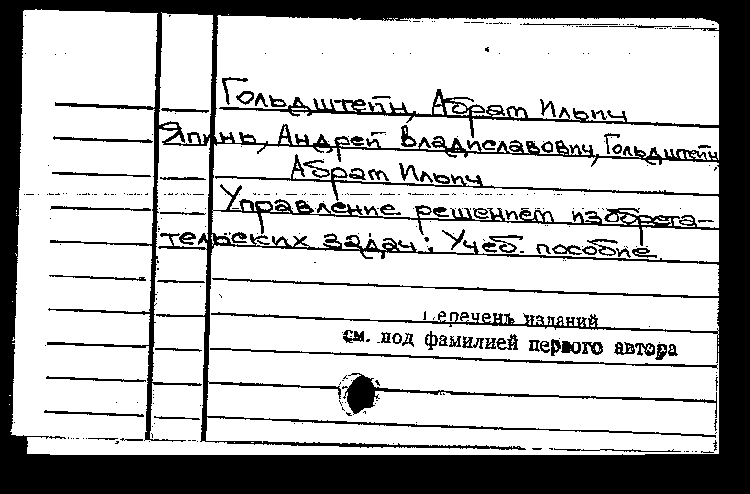 Гольдштейн, Абрам Ильич
Япинь, Андрей Владиславович, Гольдштейн
Абрам Ильич
Управление решением изобрета-
тельских задач: Учеб. пособие
Перечень изданий
см. под фамилией первого автора